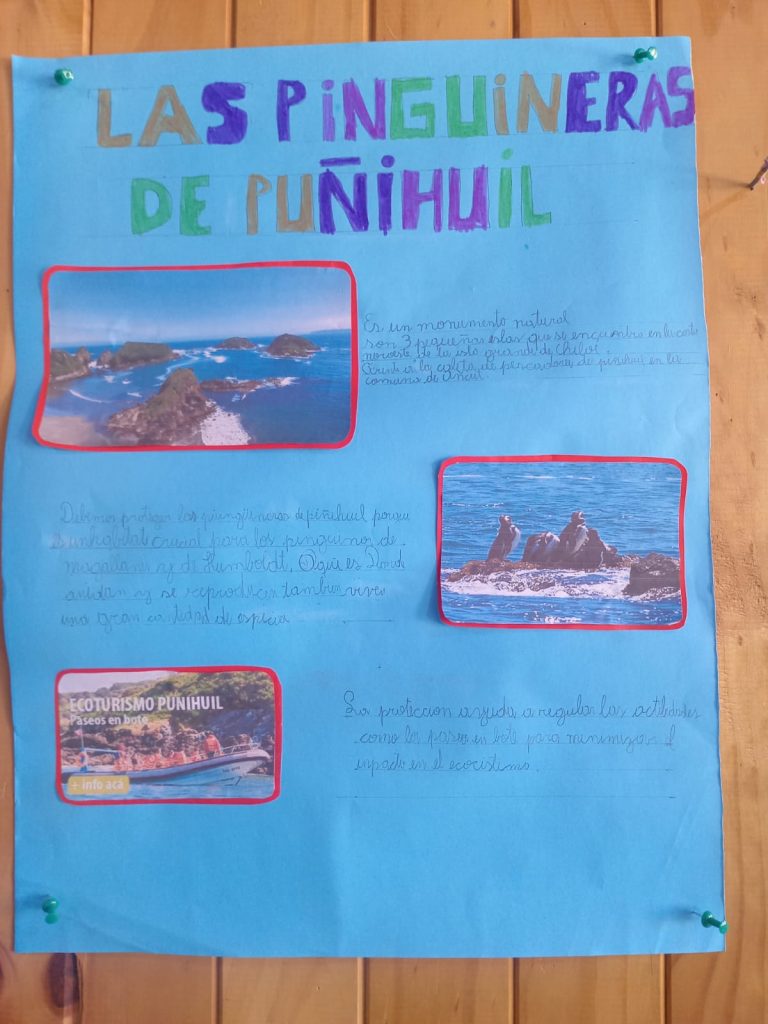 LAS PINGUINERAS
DE PUÑIHUIL
Es un monumento natural
son 3 pequeñas islas que se encuentra en la costa
noroeste de la isla grande de Chiloé.
Frente a la caleta de pescadores de piñihuil en la
comuna de Ancud.
Debemos proteger las pingüineras de piñihuil porque
Es un habitat crucial para los pinguinos de
magallanes y de Humboldt. Aquí es Donde
anidan y se reproducen tambien viven
una gran cantidad de especie
ECOTURISMO PUÑIHUIL
Paseos en bote
+ info acá
La proteccion ayuda a regular las actividades
como los paseo en bote para minimizar el
inpacto en el ecocistema.